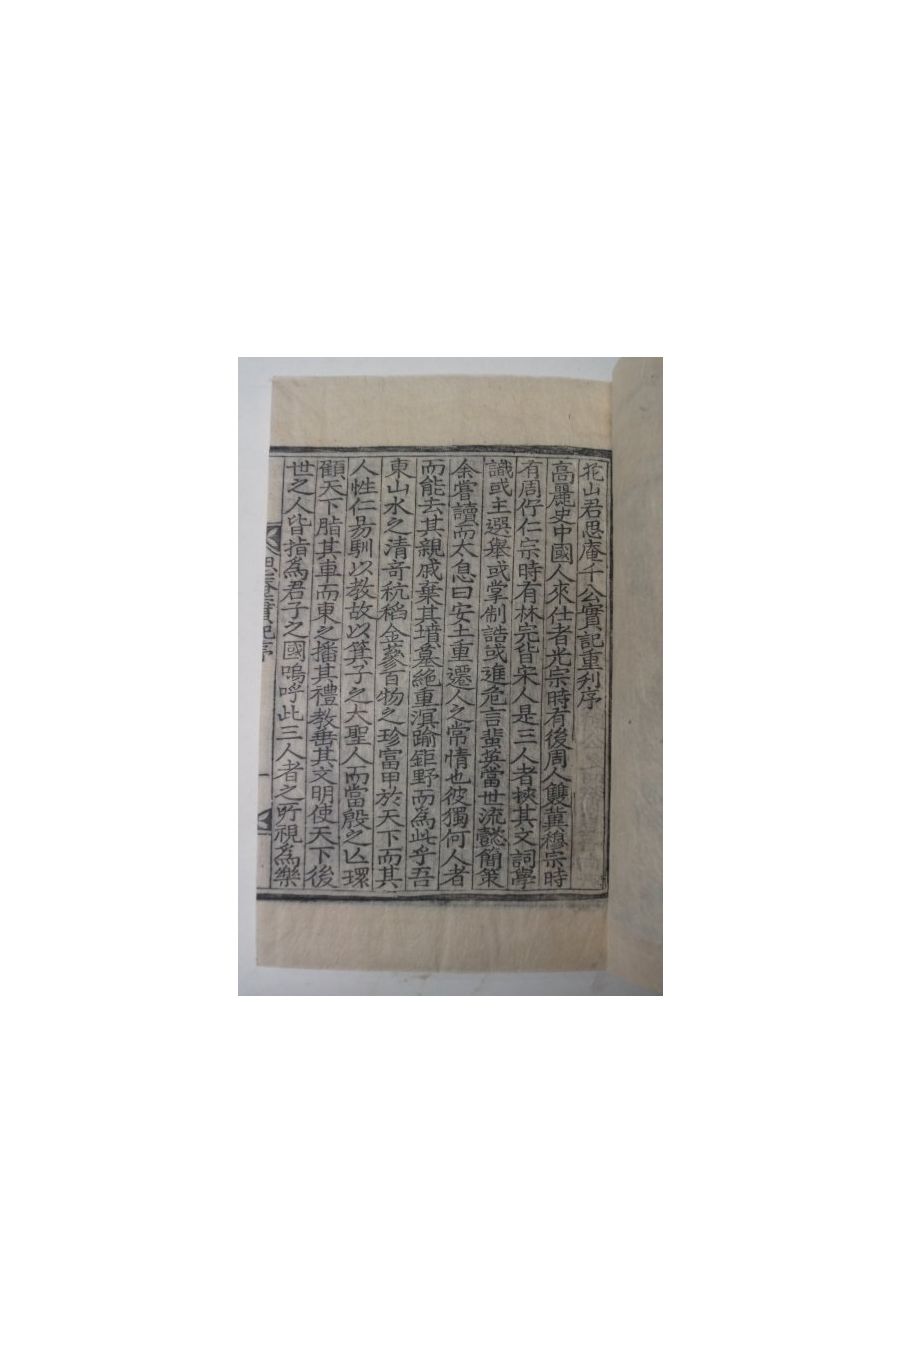 花山君思庵千公實記重刋序
高麗史中國人來仕者光宗時有後周人雙冀穆宗時
有周佇仁宗時有林完皆宋人是三人者挾其文詞學
識或主選舉或掌制誥或進危言蜚英當世流懿簡策
余嘗讀而太息曰安土重遷人之常情也彼獨何人者
而能去其親戚棄其墳墓絶重溟踰鉅野而為此乎吾
東山水之清奇秔稻金蔘百物之珍富甲於天下而其
人性仁易馴以教故以箕子之大聖人而當殷之亾環
顧天下脂其車而東之播其禮教垂其文明使天下後
世之人皆指為君子之國嗚呼此三人者之所視為樂
思庵實記序
一